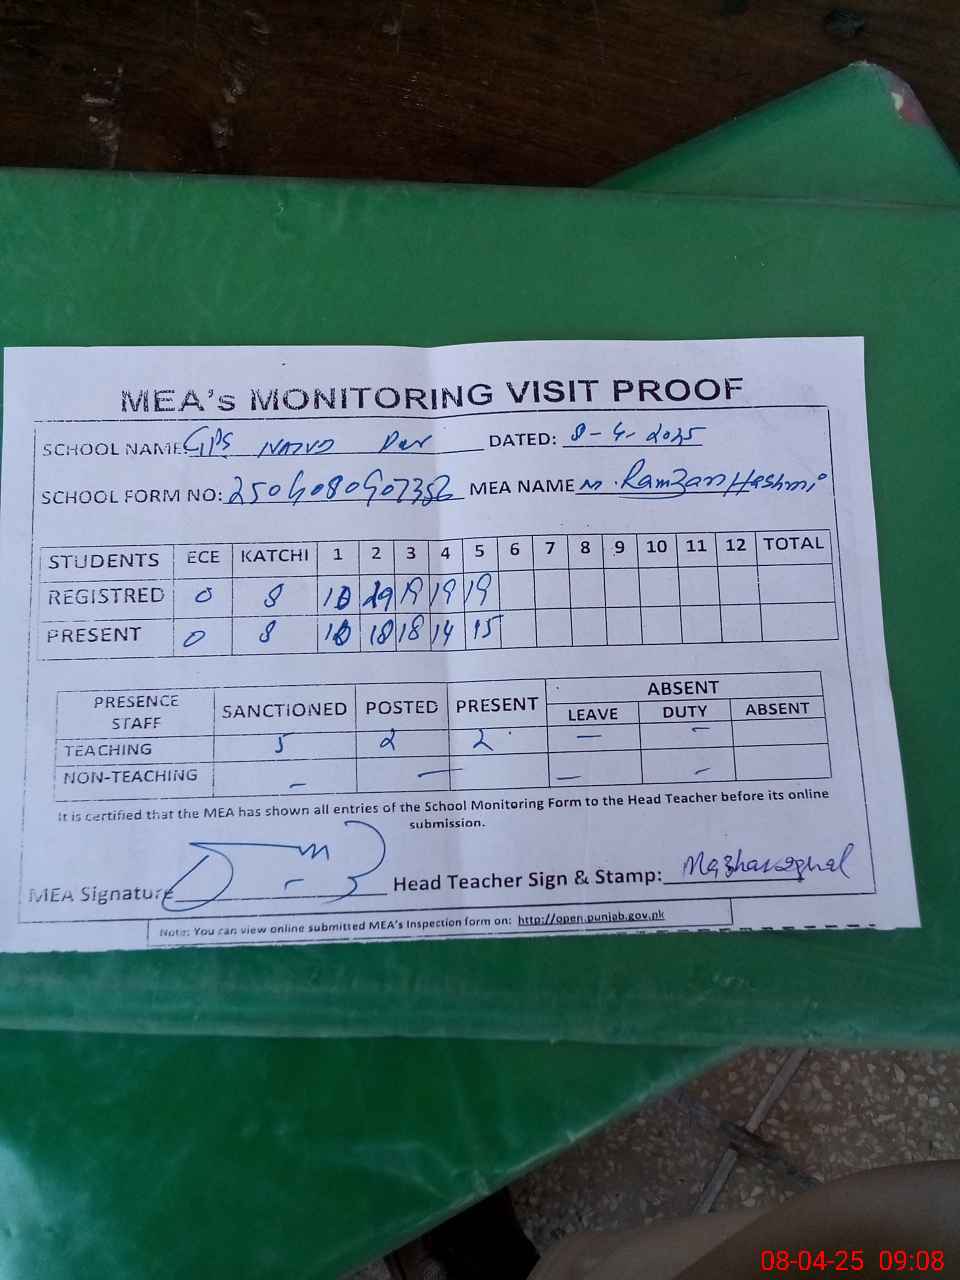 MEA's MONITORING VISIT PROOF
SCHOOL NAME GPS DATED: 8-4-2025
SCHOOL FORM NO: MEA NAME M. Ramzan Hashmi
STUDENTS ECE KATCHI 1 2 3 4 5 6 7 8 9 10 11 12 TOTAL
REGISTRED 0 8 10 29 19 19 19
PRESENT 0 8 10 18 18 14 15
PRESENCE STAFF SANCTIONED POSTED PRESENT ABSENT
LEAVE DUTY ABSENT
TEACHING 5 2 2 — —
NON-TEACHING — — — —
It is certified that the MEA has shown all entries of the School Monitoring Form to the Head Teacher before its online
submission.
MEA Signature Head Teacher Sign & Stamp:
Note: You can view online submitted MEA's Inspection form on: http://open.punjab.gov.pk
08-04-25 09:08